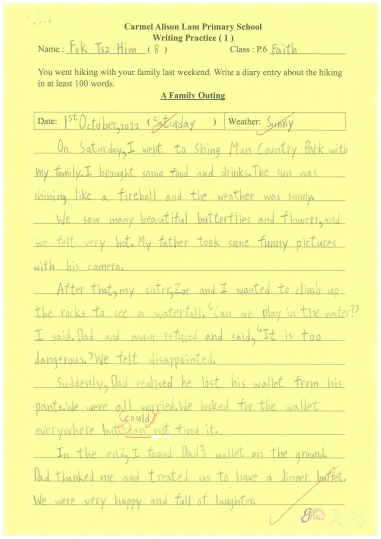 Carmel Alison Lam Primary School
Writing Practice ( 1 )
Name : Fok Tsz Him ( 8 ) Class : P.6 Faith
You went hiking with your family last weekend. Write a diary entry about the hiking
in at least 100 words.
A Family Outing
Date: 1st October, 2022 ( Saturday ) Weather: Sunny
On Saturday, I went to Shing Mun Country Park with
my family. I brought some food and drinks. The sun was
shining like a fireball and the weather was sunny.
We saw many beautiful butterflies and flowers, and
we felt very hot. My father took some funny pictures
with his camera.
After that, my sister, Zoe and I wanted to climb up
the rocks to see a waterfall. "Can we play in the water?"
I said. Dad and mum refused and said, "It is too
dangerous." We felt disappointed.
Suddenly, Dad realised he lost his wallet from his
pants. We were all worried. We looked for the wallet
could
everywhere but can not find it.
In the end, I found Dad's wallet on the ground.
Dad thanked me and treated us to have a dinner buffet.
We were very happy and full of laughter.